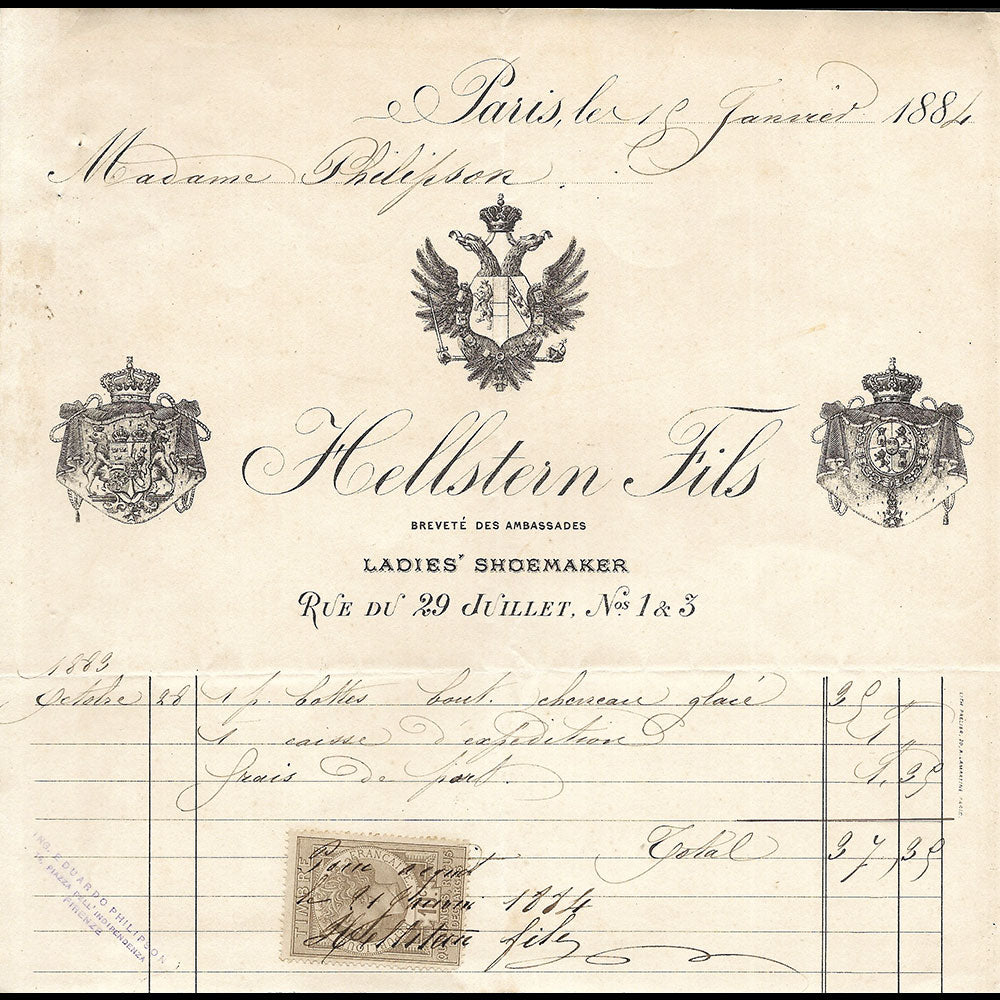 Paris, le 15 Janvier 1884
Madame Philipson
Hellstern Fils
BREVETÉ DES AMBASSADES
LADIES' SHOEMAKER
RUE DU 29 JUILLET, Nos 1 & 3
1883
Octobre 28 1 p. bottes bout. chevreau glacé 35 "
1 caisse d'expédition 1 "
Frais de port. 1,35
Total 37,35
TIMBRE
FRANÇAIS
Pour acquit
le 21 1884
Hellstern fils
ING. EDUARDO PHILIPSON
PIAZZA DELL'INDIPENDENZA
FIRENZE